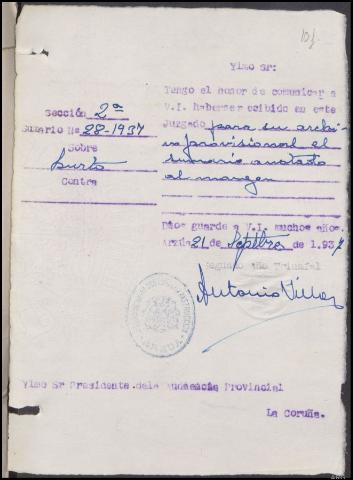 Ylmo Sr:
Tengo el honor de comunicar a
V.I. haberse recibido en este
Juzgado para su archi-
vo provisional el
sumario anotado
al margen
Sección 2ª
Sumario Nº 28-1937
Sobre
hurto
Contra
Dios guarde a V.I. muchos años.
Arzúa 21 de Septbre de 1.937
Segundo Año Triunfal
Antonio
Ylmo Sr Presidente dela Audencia Provincial
La Coruña.